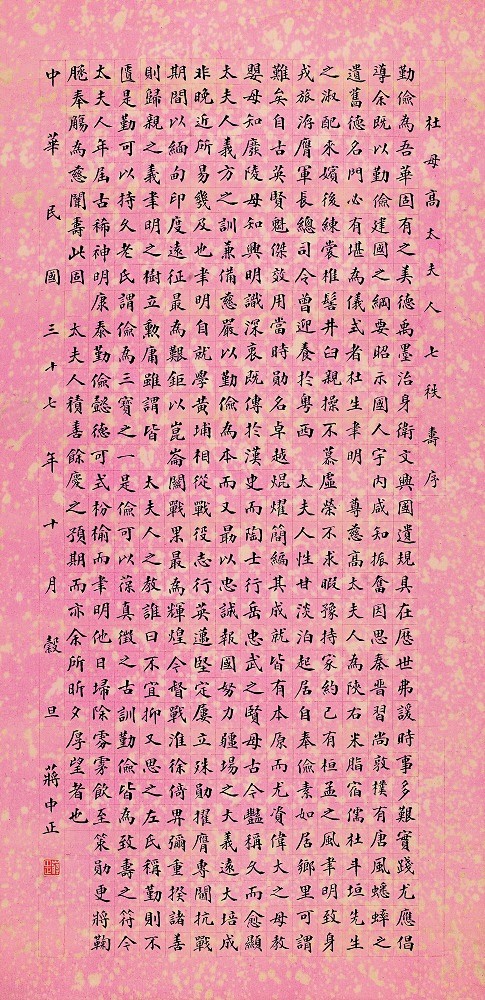 杜母高太夫人七秩壽序
勤儉為吾華固有之美德禹墨治身衛文興國遺規具在歷世弗諼時事多艱實踐尤應倡
導余既以勤儉建國之綱要昭示國人宇內咸知振奮因思秦晉習尚敦樸有唐風蟋蟀之
遺舊德名門必有堪為儀式者杜生聿明　尊慈高太夫人為陝右米脂宿儒杜斗垣先生
之淑配來嬪後練裳椎髻井臼親操不慕虛榮不求暇豫持家約己有桓孟之風聿明致身
戎旅洊膺軍長總司令曾迎養於粵西　太夫人性甘淡泊起居自奉儉素如居鄉里可謂
難矣自古英賢魁傑效用當時勛名卓越焜燿簡編其成就皆有本原而尤資偉大之母教
嬰母知廢陵母知興明識深衷既傳於漢史而陶士行岳忠武之賢母古今豔稱久而愈顯
太夫人義方之訓兼備慈嚴以勤儉為本而又最以忠誠報國努力疆場之大義遠大培成
非晚近所易幾及也聿明自就學黃埔相從戰役志行英邁堅定屢立殊勛擢膺專閫抗戰
期間以緬甸印度遠征最為艱鉅以崑崙關戰果最為輝煌今督戰淮徐倚畀彌重揆諸善
則歸親之義聿明之樹立勳庸雖謂皆　太夫人之教誰曰不宜抑又思之左氏稱勤則不
匱是勤可以持久老氏謂儉為三寶之一是儉可以葆真徵之古訓勤儉皆為致壽之符今
太夫人年屆古稀神明康泰勤儉懿德可式枌榆而聿明他日埽除雰雺飲至策勛更將鞠
䠶奉觴為慈闈壽此固　太夫人積善餘慶之預期而亦余所昕夕厚望者也
中華民國三十七年十月穀旦　蔣中正